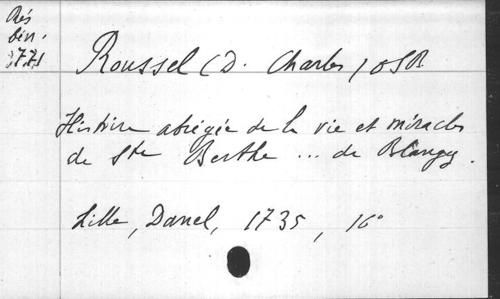 Rés
Din.
3771
Roussel (D. Charles) OSB
Histoire abrégée de la vie et miracles
de Ste Berthe ... de Blangy.
Lille, Danel, 1735, 16°